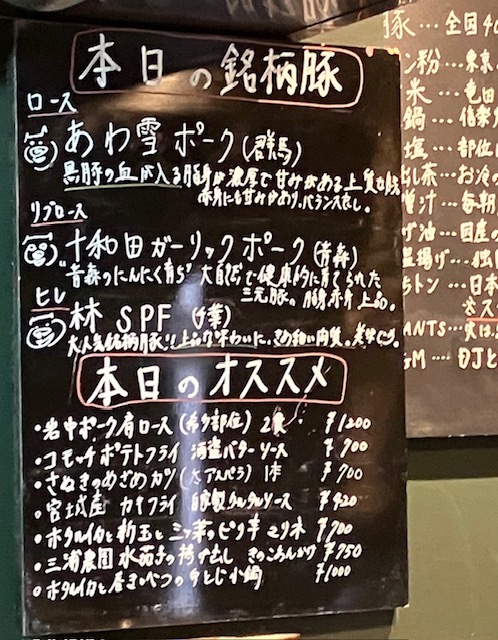 本日の銘柄豚
ロース
あわ雪ポーク(群馬)
黒豚の血が入る脂身が濃厚で甘みがある上質な
赤身にも甘みがあり、バランスよし。
リブロース
十和田ガーリックポーク(青森)
青森のにんにく育ち 大自然で健康的に育てられた
三元豚の脂赤身上品。
ヒレ
林SPF(千葉)
大人気銘柄豚!!上品な味わいに、きめ細い肉質。美味
本日のオススメ
・岩中ポーク肩ロース(希少部位)2貫 ¥1200
・コモッチポテトフライ 海塩バターソース ¥700
・さぬきのめざめカツ(大アスパラ)1本 ¥700
・宮城産カキフライ 自家製タルタルソース ¥420
・ホタルイカと新玉と三ツ葉のピリ辛マリネ ¥700
・三浦農園水茄子の揚げ出し きのこあんかけ ¥750
・ホタルイカと春キャベツの小鍋 ¥1000
豚…全国40
ン粉…東京
米…竜田
鍋…
塩…部位
だし茶…お冷の
噌汁…毎朝
げ油…国産の
塩揚げ…独
トン…日本
※ス
ANTS…実は
GM…DJと